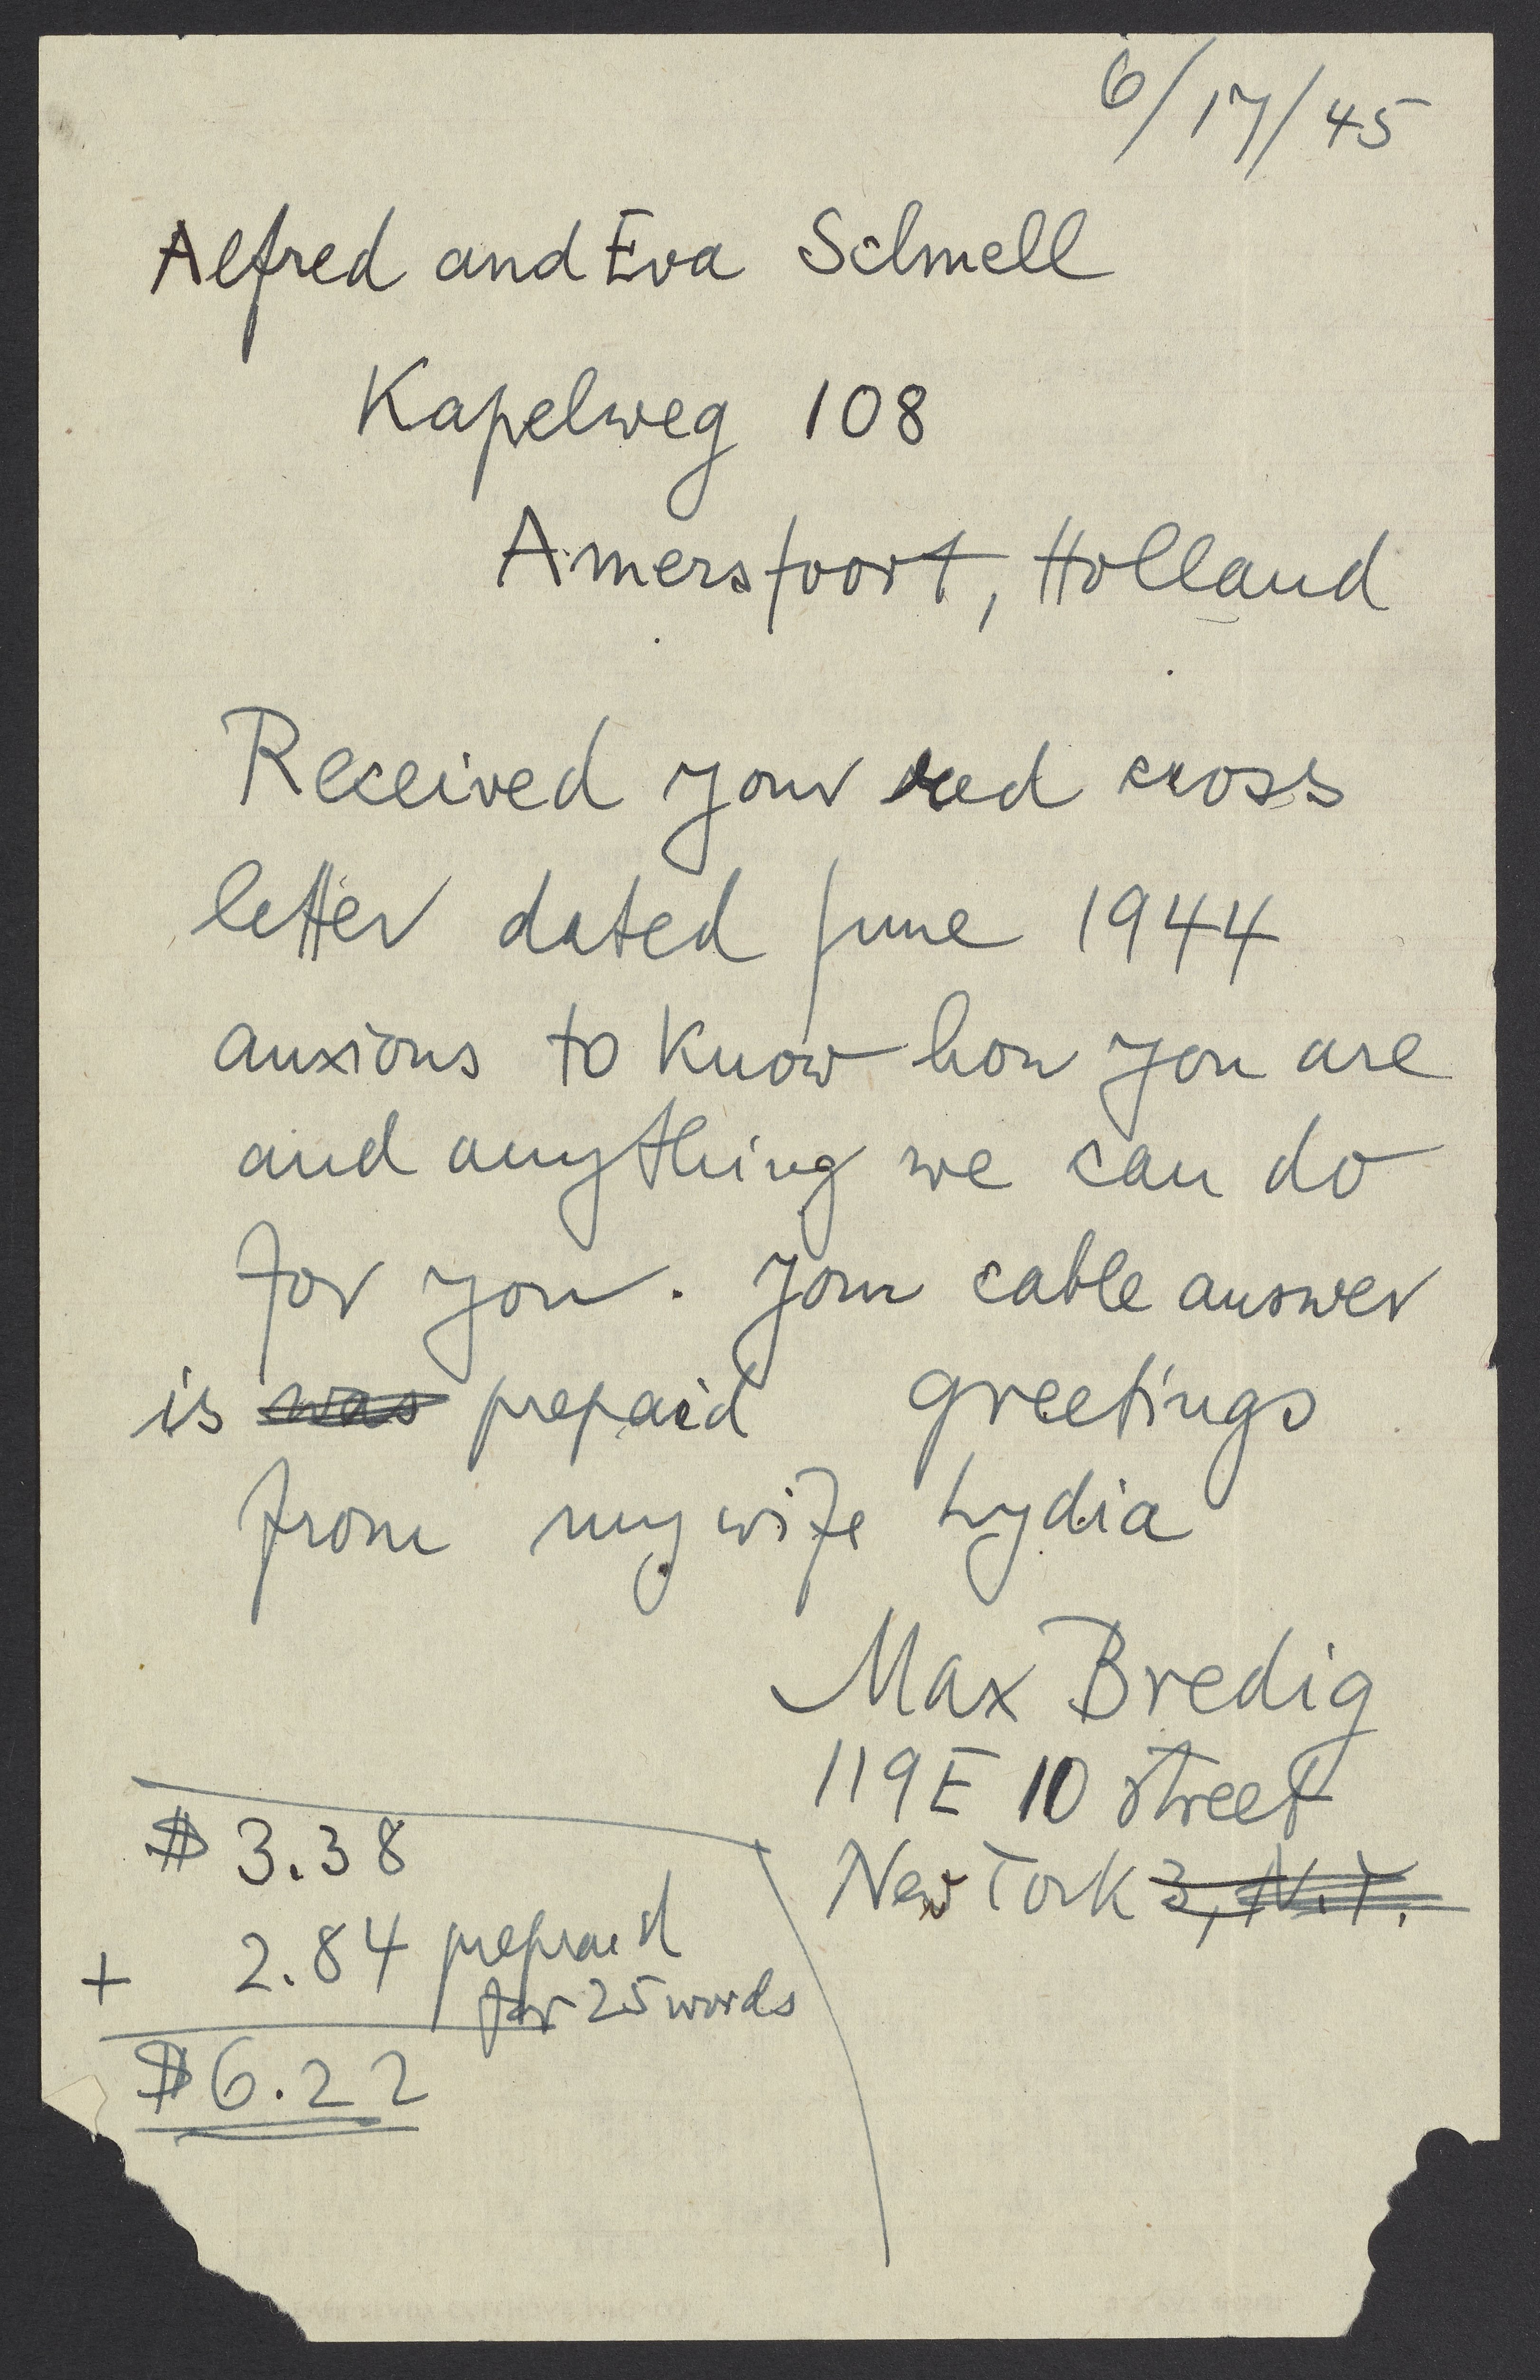 6/17/45
Alfred and Eva Schnell
Kapelweg 108
Amersfoort, Holland
Received your red cross
letter dated June 1944
anxious to know how you are
and anything we can do
for you. Your cable answer
is was prepaid greetings
from my wife Lydia
Max Bredig
119 E 10 street
New York 3, N.Y.
$ 3.38
+ 2.84 prepaid
for 25 words
$6.22